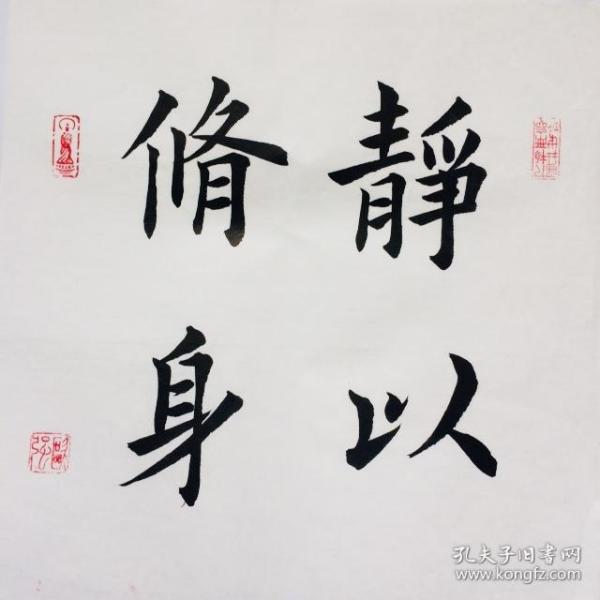 靜以
脩身
孔夫子旧书网
www.kongfz.com